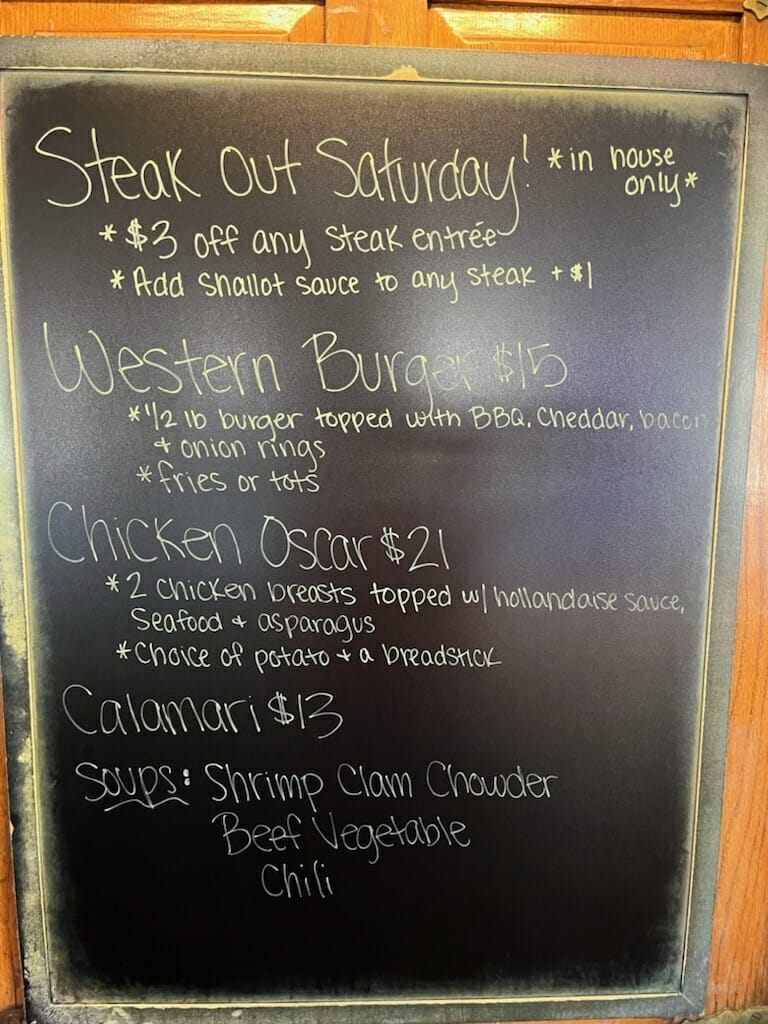 Steak Out Saturday! *in house
only*
*$3 off any steak entrée
*Add shallot sauce to any steak + $1
Western Burger $15
*1/2 lb burger topped with BBQ, cheddar, bacon
+ onion rings
*fries or tots
Chicken Oscar $21
*2 chicken breasts topped w/ hollandaise sauce,
seafood + asparagus
*Choice of potato + a breadstick
Calamari $13
Soups: Shrimp Clam Chowder
Beef Vegetable
Chili